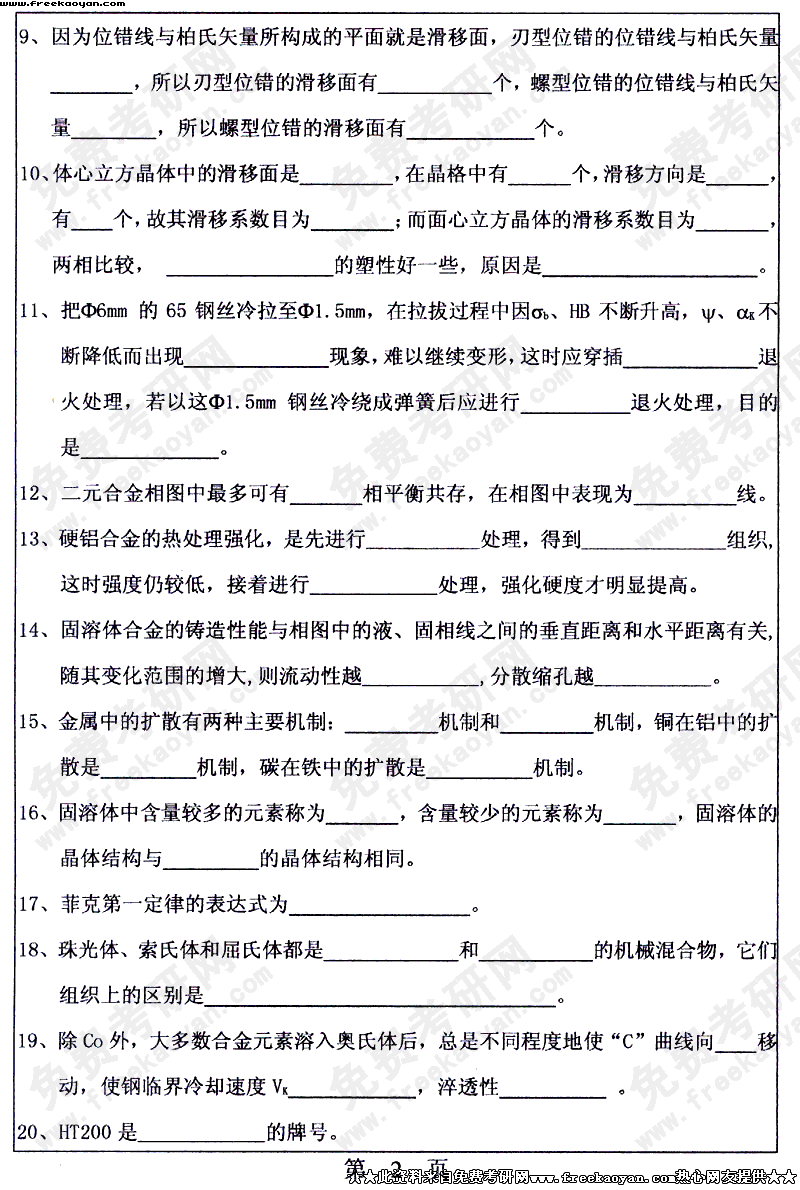 www.freekaoyan.com
9、因为位错线与柏氏矢量所构成的平面就是滑移面，刃型位错的位错线与柏氏矢量
________，所以刃型位错的滑移面有___________个，螺型位错的位错线与柏氏矢
量________，所以螺型位错的滑移面有____________个。
10、体心立方晶体中的滑移面是_________，在晶格中有______个，滑移方向是______，
有____个，故其滑移系数目为________；而面心立方晶体的滑移系数目为_______，
两相比较，________________的塑性好一些，原因是_____________________。
11、把Φ6mm 的 65 钢丝冷拉至Φ1.5mm，在拉拔过程中因σb、HB 不断升高，ψ、αK不
断降低而出现______________现象，难以继续变形，这时应穿插_____________退
火处理，若以这Φ1.5mm 钢丝冷绕成弹簧后应进行__________退火处理，目的
是_____________。
12、二元合金相图中最多可有_______相平衡共存，在相图中表现为__________线。
13、硬铝合金的热处理强化，是先进行___________处理，得到______________组织，
这时强度仍较低，接着进行____________处理，强化硬度才明显提高。
14、固溶体合金的铸造性能与相图中的液、固相线之间的垂直距离和水平距离有关，
随其变化范围的增大，则流动性越___________，分散缩孔越___________。
15、金属中的扩散有两种主要机制：_________机制和_________机制，铜在铝中的扩
散是_________机制，碳在铁中的扩散是__________机制。
16、固溶体中含量较多的元素称为_______，含量较少的元素称为_______，固溶体的
晶体结构与_________的晶体结构相同。
17、菲克第一定律的表达式为_________________。
18、珠光体、索氏体和屈氏体都是_____________和___________的机械混合物，它们
组织上的区别是__________________________________。
19、除Co外，大多数合金元素溶入奥氏体后，总是不同程度地使“C”曲线向____移
动，使钢临界冷却速度VK____________，淬透性___________ 。
20、HT200是____________的牌号。
第 2 页
★此资料来自免费考研网www.freekaoyan.com热心网友提供★★
免费考研网
www.freekaoyan.com